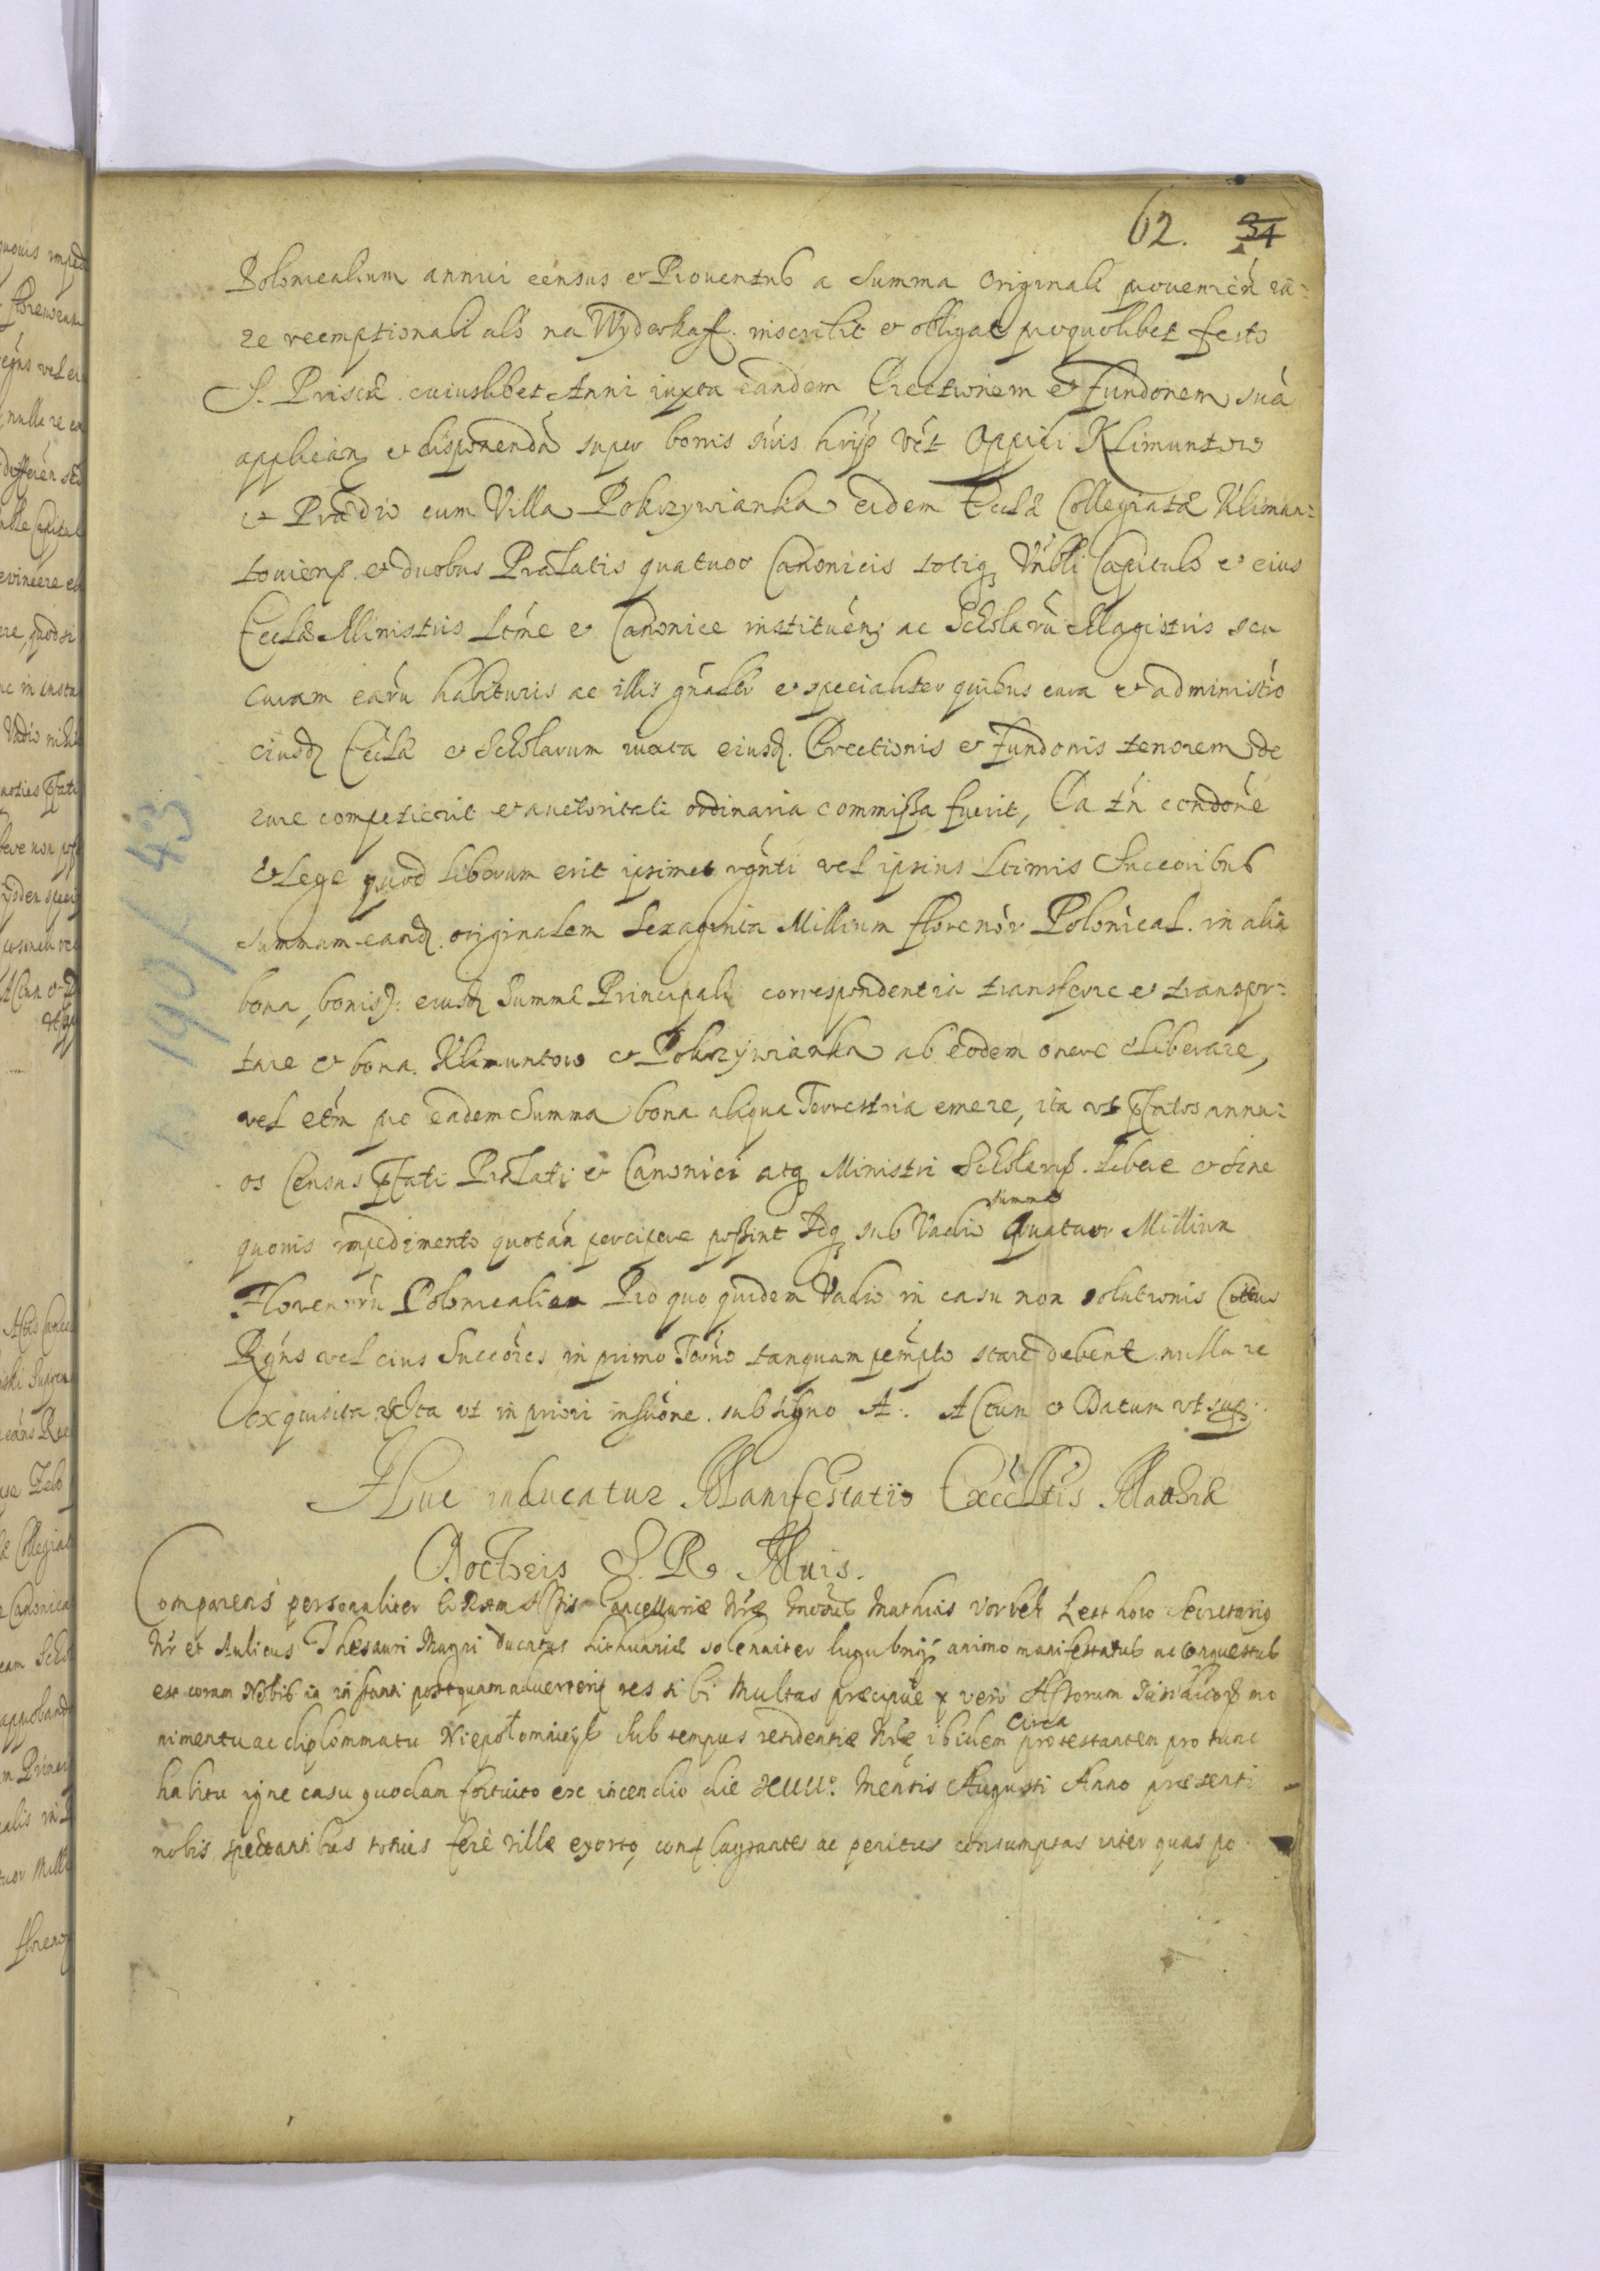 62. 34
Polonicalium annui census et Prouentus a summa originali prouenien iu:
re reemptionali als na Wyderkaff. inscribit et obligat pro quolibet festo
S. Priscæ. cuiuslibet Anni iuxta eandem Erectionem et Fundonem suā
applican et disponendā super bonis suis hrijs vēt Oppidi Klimuntow
et Prædio cum Villa Pokrzywianka eidem Eccłæ Collegiatæ Kliman:
touiens. et duobus Prælatis quatuor Canonicis totiq Vnbli Capitulo et eius
Eccłæ Ministris Ltme et Canonice instituen ac Scholarū Magistris seu
Curam earū habituris ac illis gnałr et specialiter quibus cura et administro
eiusd Eccłæ et Scholarum iuxta eiusd. Erectionis et Fundonis tenorem de
iure competierit et auctoritate ordinaria commissa fuerit, Ea tn condone
et Lege quod liberum erit ipsimet rgnti vel ipsius Ltimis Succoribus
summam eand. originalem Sexaginta Millium florenor Polonical. in alia
bona, bonis): eiusd Summæ Principali correspondentia transferre et transpor:
tare et bona. Klimuntow et Pokrzywianka ab eodem onere eliberare,
vel etm pro eadem Summa bona aliqua Terrestria emere, ita vt pfatos annu:
os Census pfati Prælati et Canonici atq Ministri Scholarus. libere et sine
quouis impedimento quotan percipere possint Idq sub Vadio summæ Quatuor Millium
Florenorū Polonicaliu Pro quo quidem Vadio in casu non solutionis Cittus
Rgns vel eius Succores in primo Termo tanquam pempto stare debent nulla re
exquisita Ita vt in priori inscrone. sub signo A. Actum et Datum vt sup.
Huc inducatur Manifestatio Excelltis Mathiæ
Vorbeis S. R. Mtis.
Comparens personaliter coram Actis Cancellariæ Nræ Mathias Vorbek Lettkow Secretarig
Nr et Aulicus Thesauri Magni Ducatus Lithuaniæ solenniter lugubrijs animo manifestatus ac conquestus
est coram Nobis in instanti postquam aduerteris res sibi multas præcipuè vero Actorum Juridicor mo
nimentu ac diplommatu Niepołomicijs sub tempus residentiæ Nræ ibidem circa protestantem pro tunc
habitu igne casu quodam fortuito ex incendio die XIIII. Mensis Augusti Anno præsenti
nobis spectantibus totius ferè villæ exorto, conflagrantes ac penitus consumptas inter quas po
190/43